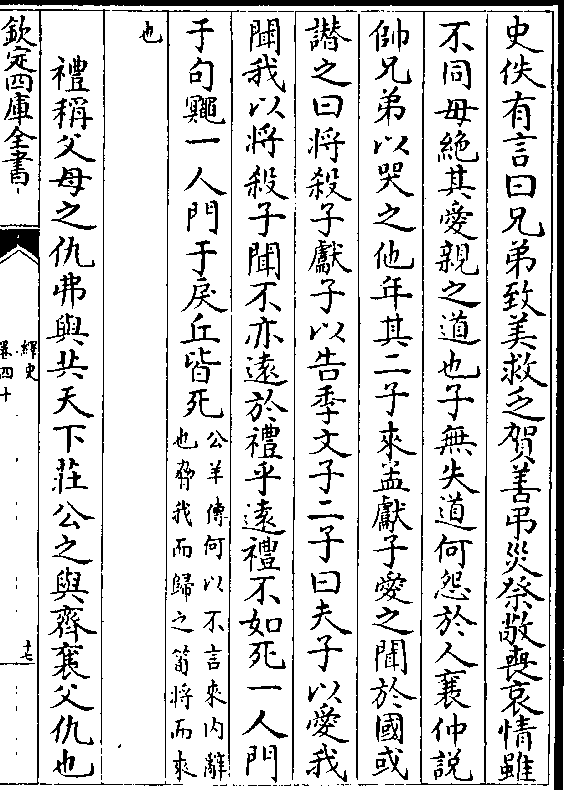 史佚有言曰兄弟致美救乏賀善弔災祭敬喪哀情雖
不同毋絶其愛親之道也子無失道何怨於人襄仲說
帥兄弟以哭之他年其二子來孟獻子愛之聞於國或
譖之曰將殺子獻子以告季文子二子曰夫子以愛我
聞我以將殺子聞不亦遠於禮乎遠禮不如死一人門
于句鼆一人門于戾丘皆死公羊傳何以不言來内辭
也脅我而歸之筍將而來
也
禮稱父母之仇弗與共天下莊公之與齊襄父仇也
欽定四庫全書
繹史
卷四十
十七